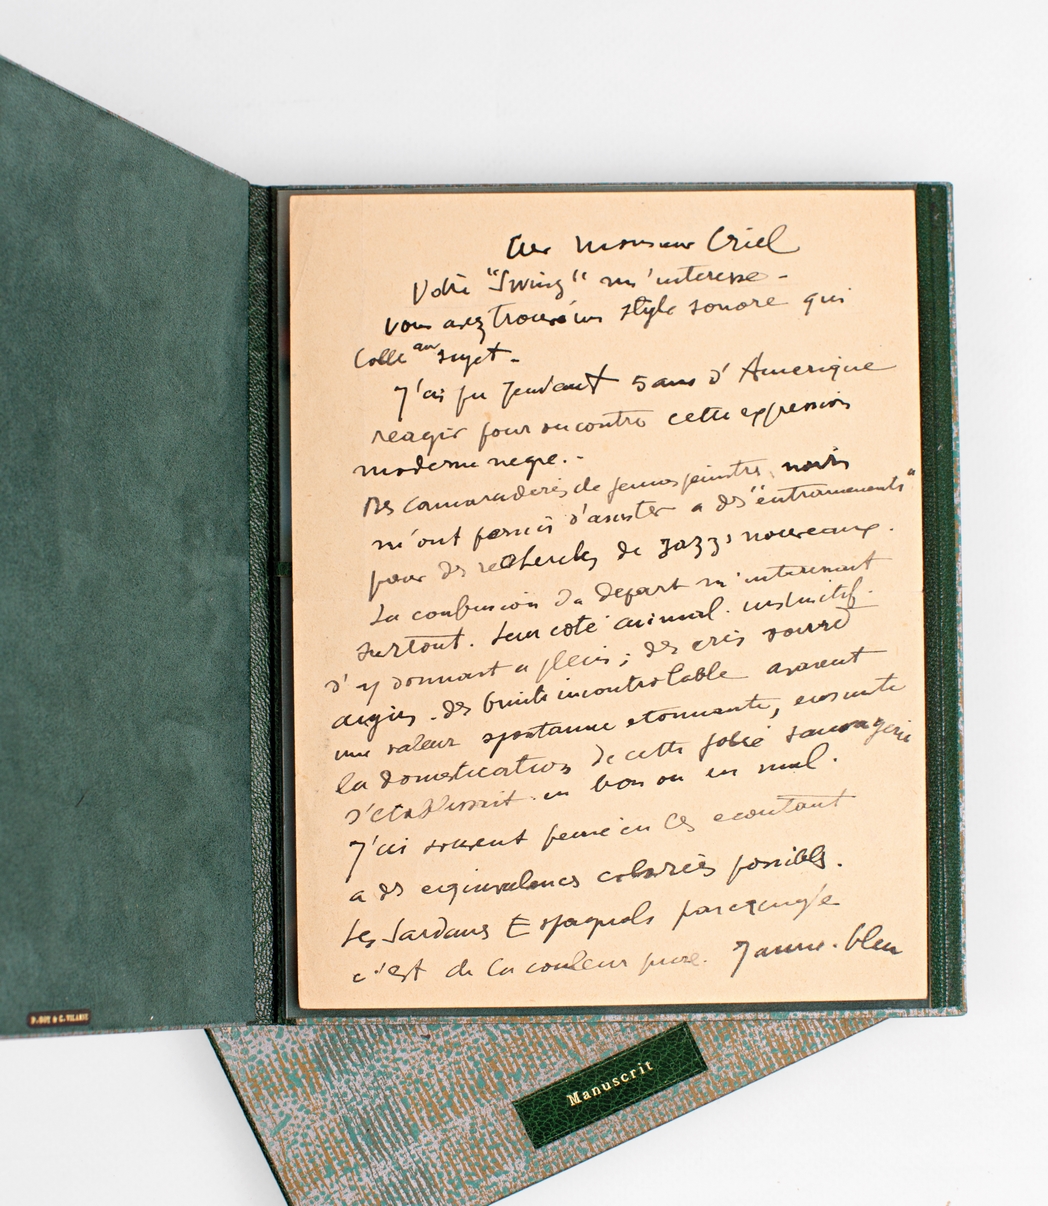 Cher Monsieur Criel
Votre "Swing" m'interesse -
Vous avez trouvé un style sonore qui
Colle au sujet -
J'ai pu pendant 5 ans d'Amerique
reagir pour ou contre cette expression
moderne negre. -
Des camaraderies de jeunes peintres noirs
m'ont permis d'assister a des "entrainements"
pour des recherches de Jazzs nouveaux.
La confusion du depart m'interessait
surtout. Leur coté animal. instinctif.
s'y donnait a plein ; des cris
aigus. des bruits incontrolable avaient
une valeur spontanne etonnante, ensuite
la domestication de cette sauvagerie
s'etablissait. en bon ou en mal.
J'ai souvent pensé en les ecoutant
a des equivalences colorées possibles.
Les Sardans Espagnols par exemple
c'est de la couleur pure. Jaune. bleu
P. GOY & C. VILAINE
Manuscrit